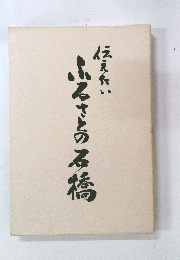 伝えたい
ふるさとの石橋